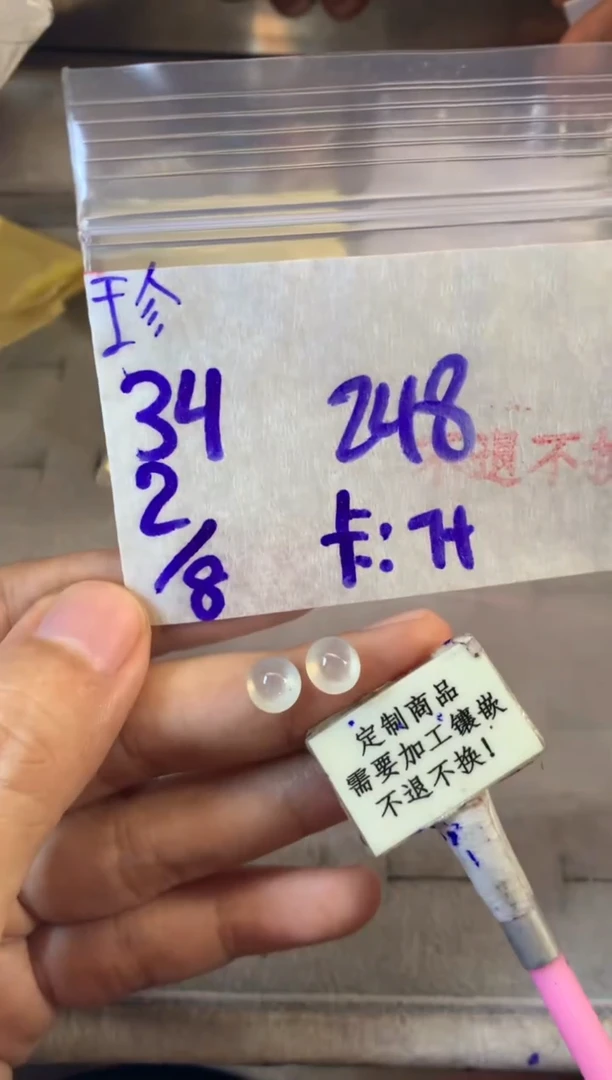 珍
34 248
2/8 卡:74
不退不换
定制商品
需要加工镶嵌
不退不换!